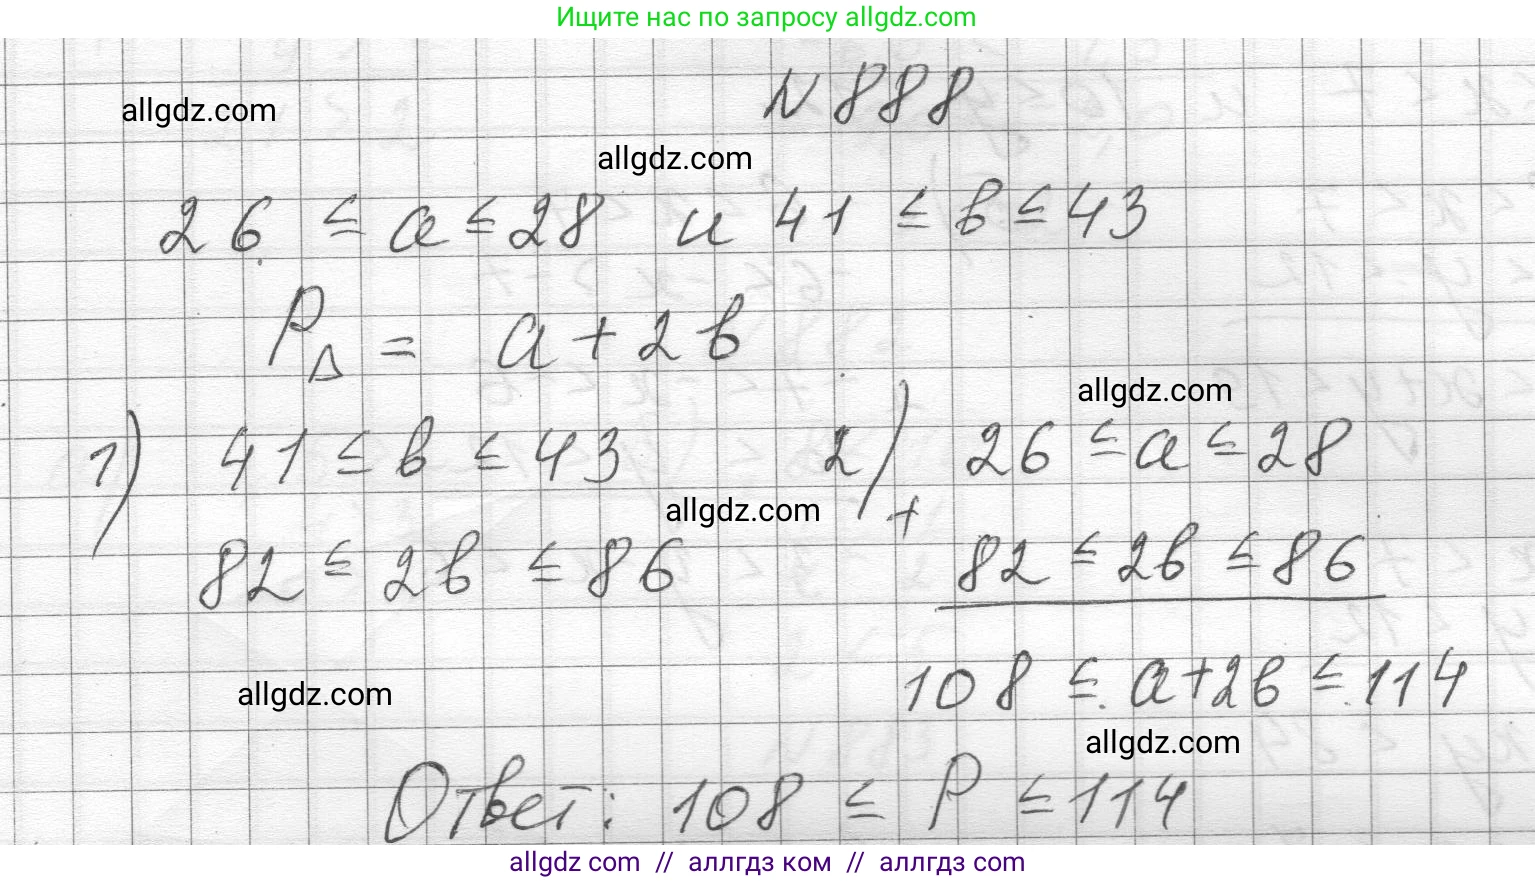 Ищите нас по запросу allgdz.com
N 888
allgdz.com
allgdz.com
26 ≤ a ≤ 28 и 41 ≤ b ≤ 43
P△ = a + 2b
allgdz.com
1) 41 ≤ b ≤ 43
82 ≤ 2b ≤ 86
2) 26 ≤ a ≤ 28
+ 82 ≤ 2b ≤ 86
108 ≤ a+2b ≤ 114
allgdz.com
allgdz.com
allgdz.com
Ответ: 108 ≤ P ≤ 114
allgdz com // аллгдз ком // аллгдз com